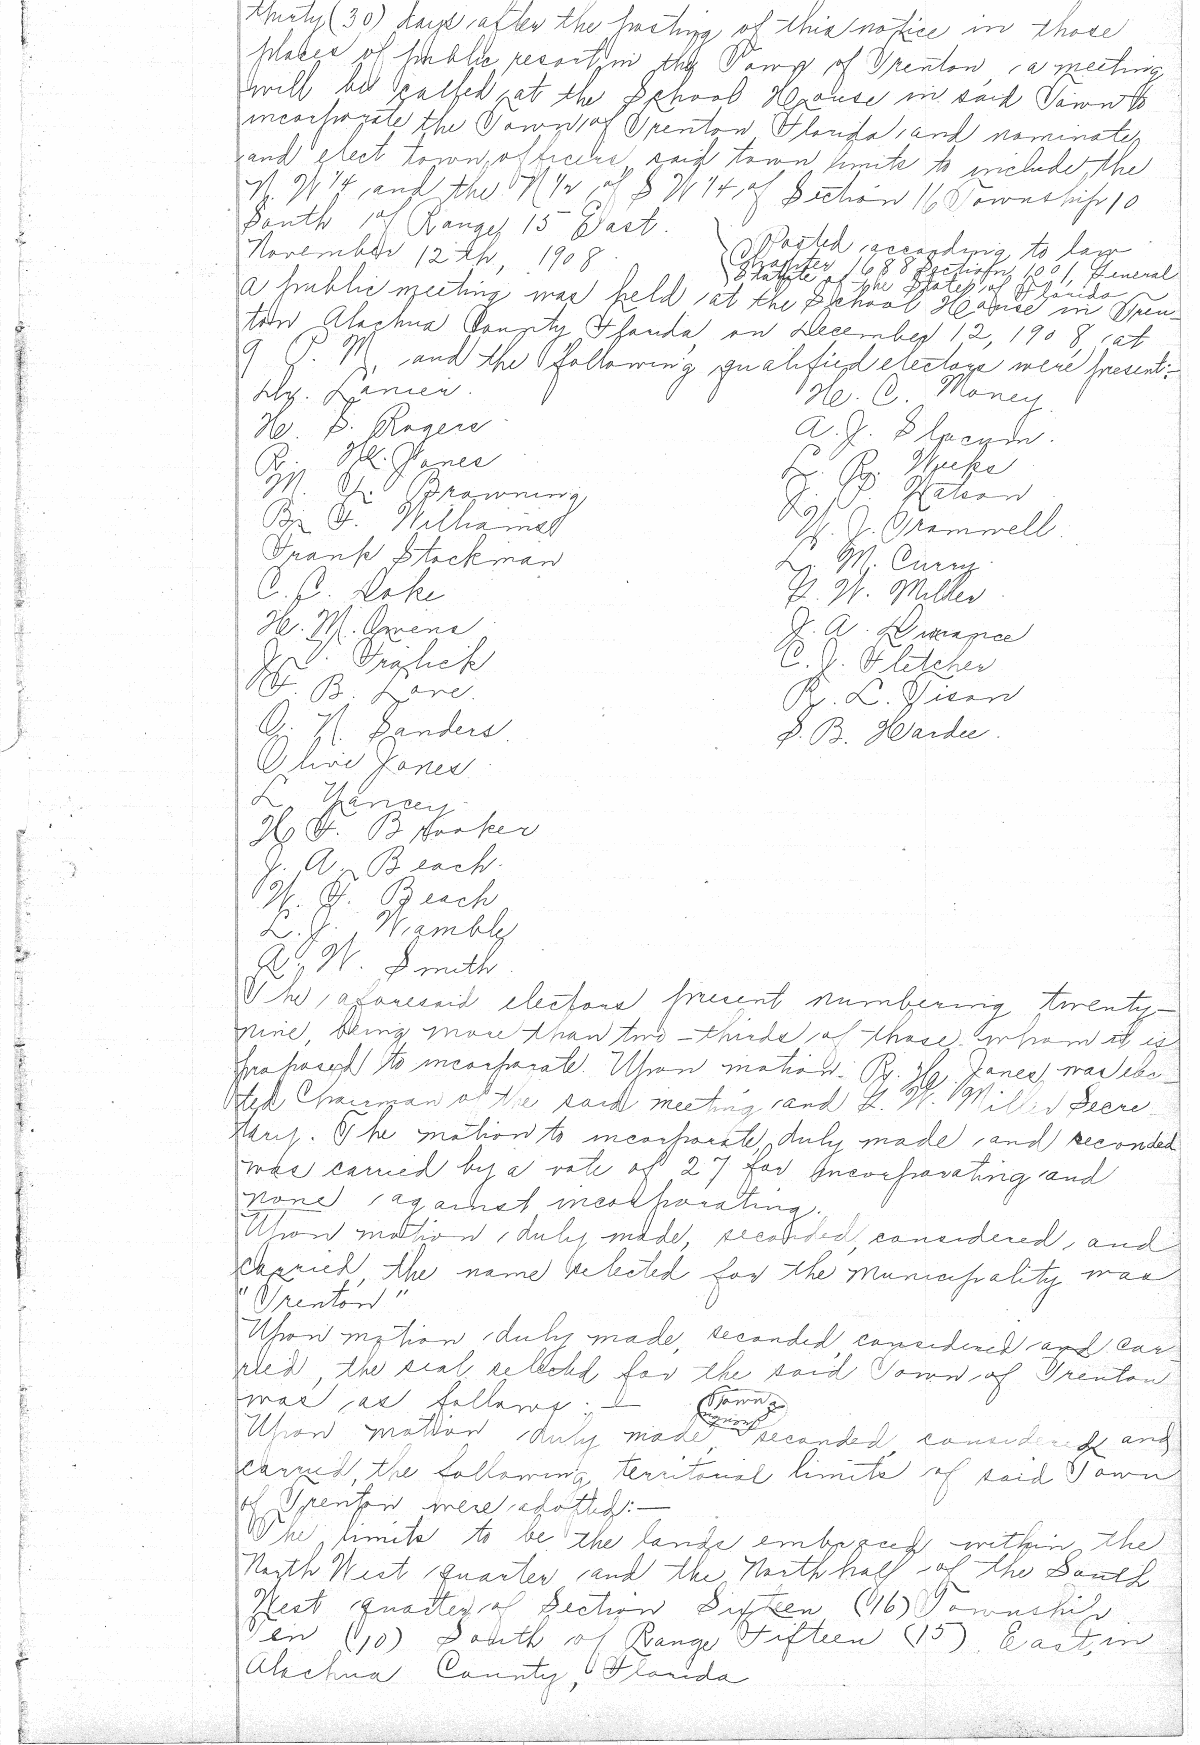 thirty (30) days after the posting of this notice in those
places of public resort in the Town of Trenton, a meeting
will be called at the School House in said Town to
incorporate the Town of Trenton Florida and nominate
and elect town officers, said town limits to include the
N. W 1/4 and the N 1/2 of S W 1/4 of Section 16 Township 10
South of Range 15 East.
November 12th, 1908.
Posted according to law
Chapter 1688 Section 1001, General
Statute of the State of Florida
A public meeting was held at the School House in Tren-
ton Alachua County Florida, on December 12, 1908, at
9 P. M, and the following qualified electors were present:-
Dr. Lanier.
H. S. Rogers
R. H. Jones
M. L. Browning
B. F. Williams
Frank Stockman
C. C. Doke
H. M. Owens
J. T. Fralick
F. B. Love.
O. N. Sanders.
Olive Jones
L. Yancey.
H. F. Brooker
J. A. Beach.
W. F. Beach
L. J. Wambly
A. W. Smith.
H. C. Money.
A. J. Slocum.
L. R. Weeks
J. P. Watson
W. J. Tramwell.
L. M. Curry.
G. W. Miller.
J. A. Durance
C. J. Fletcher
R. L. Tison
S. B. Hardee.
The aforesaid electors present numbering twenty-
nine, being more than two-thirds of those whom it is
proposed to incorporate. Upon motion R. H. Jones was elec-
ted Chairman of the said meeting and G. W. Miller Secre-
tary. The motion to incorporate, duly made and seconded
was carried by a vote of 27 for incorporating and
none against incorporating.
Upon motion duly made, seconded, considered, and
carried, the name selected for the municipality was
"Trenton"
Upon motion duly made, seconded, considered and car-
ried, the seal selected for the said Town of Trenton
was as follows:-
Town
Upon motion duly made, seconded, considered and
carried, the following territorial limits of said Town
of Trenton were adopted:-
The limits to be the lands embraced within the
North West quarter and the North half of the South
West quarter of Section Sixteen (16) Township
Ten (10) South of Range Fifteen (15) East, in
Alachua County, Florida